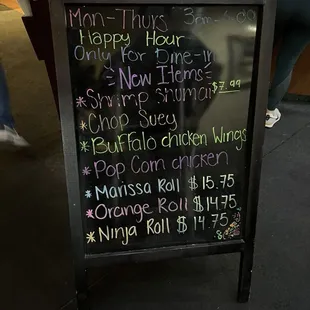 Mon-Thurs 3pm-
Happy Hour
Only For Dine-in
New Items
*Shrimp Shumai $7.99
*Chop Suey
*Buffalo chicken Wings
*Pop Corn chicken
*Marissa Roll $15.75
*Orange Roll $14.75
*Ninja Roll $14.75